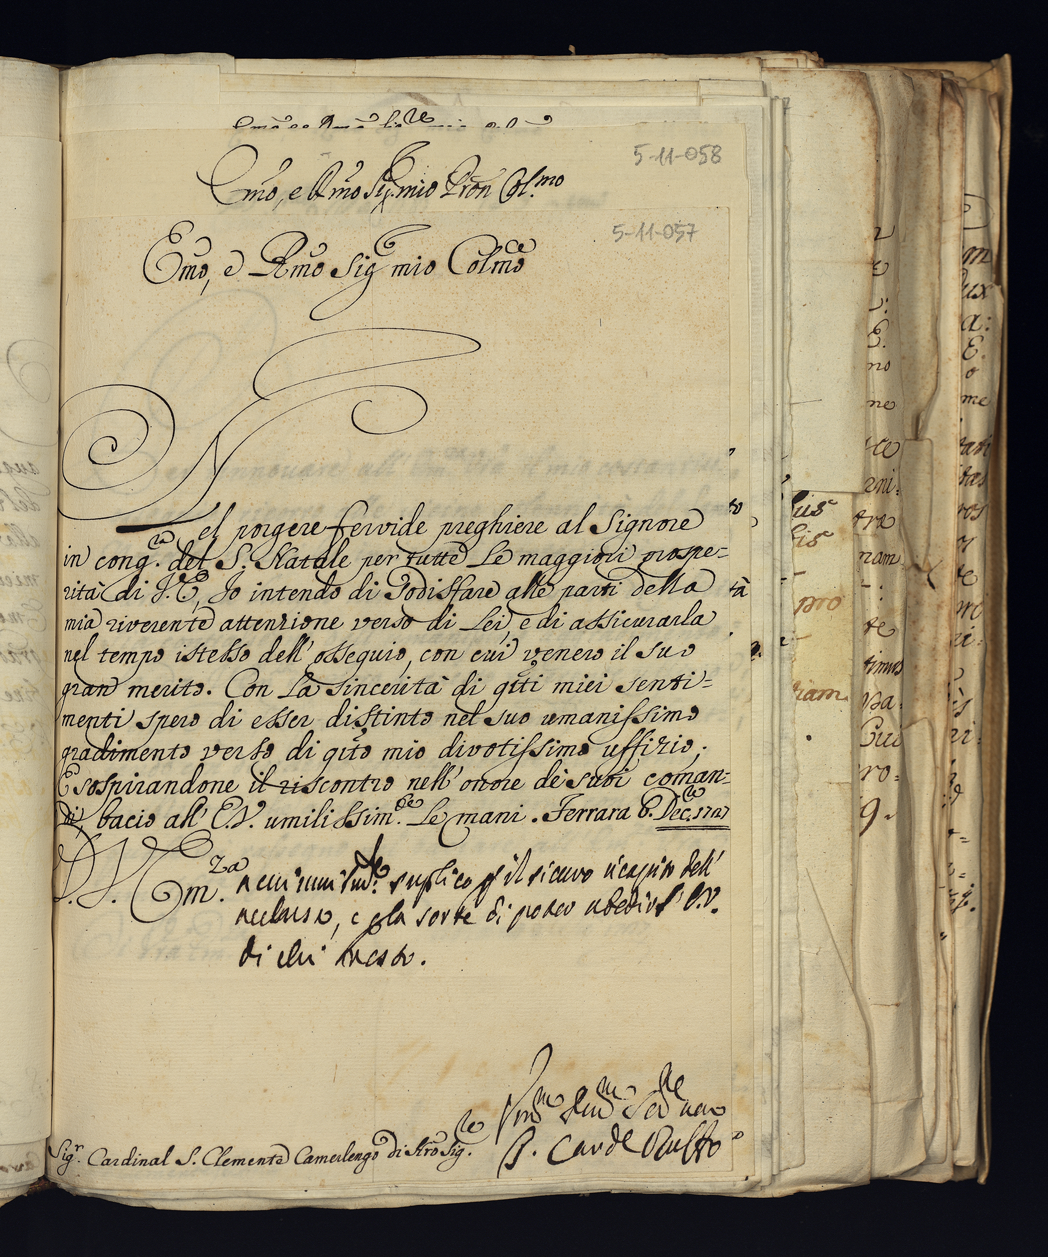 5-11-058
Emo, e Rmo Sig. mio Pron Col.mo
5-11-057
Emo, e Rmo Sig mio Colmo
Nel porgere fervide preghiere al Signore
in cong.ra del S. Natale per tutte le maggiori prospe=
rità di V.E., Io intendo di sodisfare alle parti della
mia riverente attenzione verso di Lei e di assicurarla
nel tempo istesso dell' ossequio, con cui venero il suo
gran merito. Con la sincerità di qsti miei senti=
menti spero di esser distinto nel suo umanissimo
gradimento verso di qsto mio divotissimo uffizio;
E sospirandone il riscontro nell' onore de' suoi coman=
di, bacio all' E.V. umilissim.te le mani. Ferrara 6. Dec. 1727
V. Em.za
suplico p il sicuro ricapito dell'
acclusa, e la sorte di poter ubedir l' E.V.
di chi resto.
S. Card Ruffo
Sig.r Cardinal S. Clemente Camerlengo di Nro Sig.re